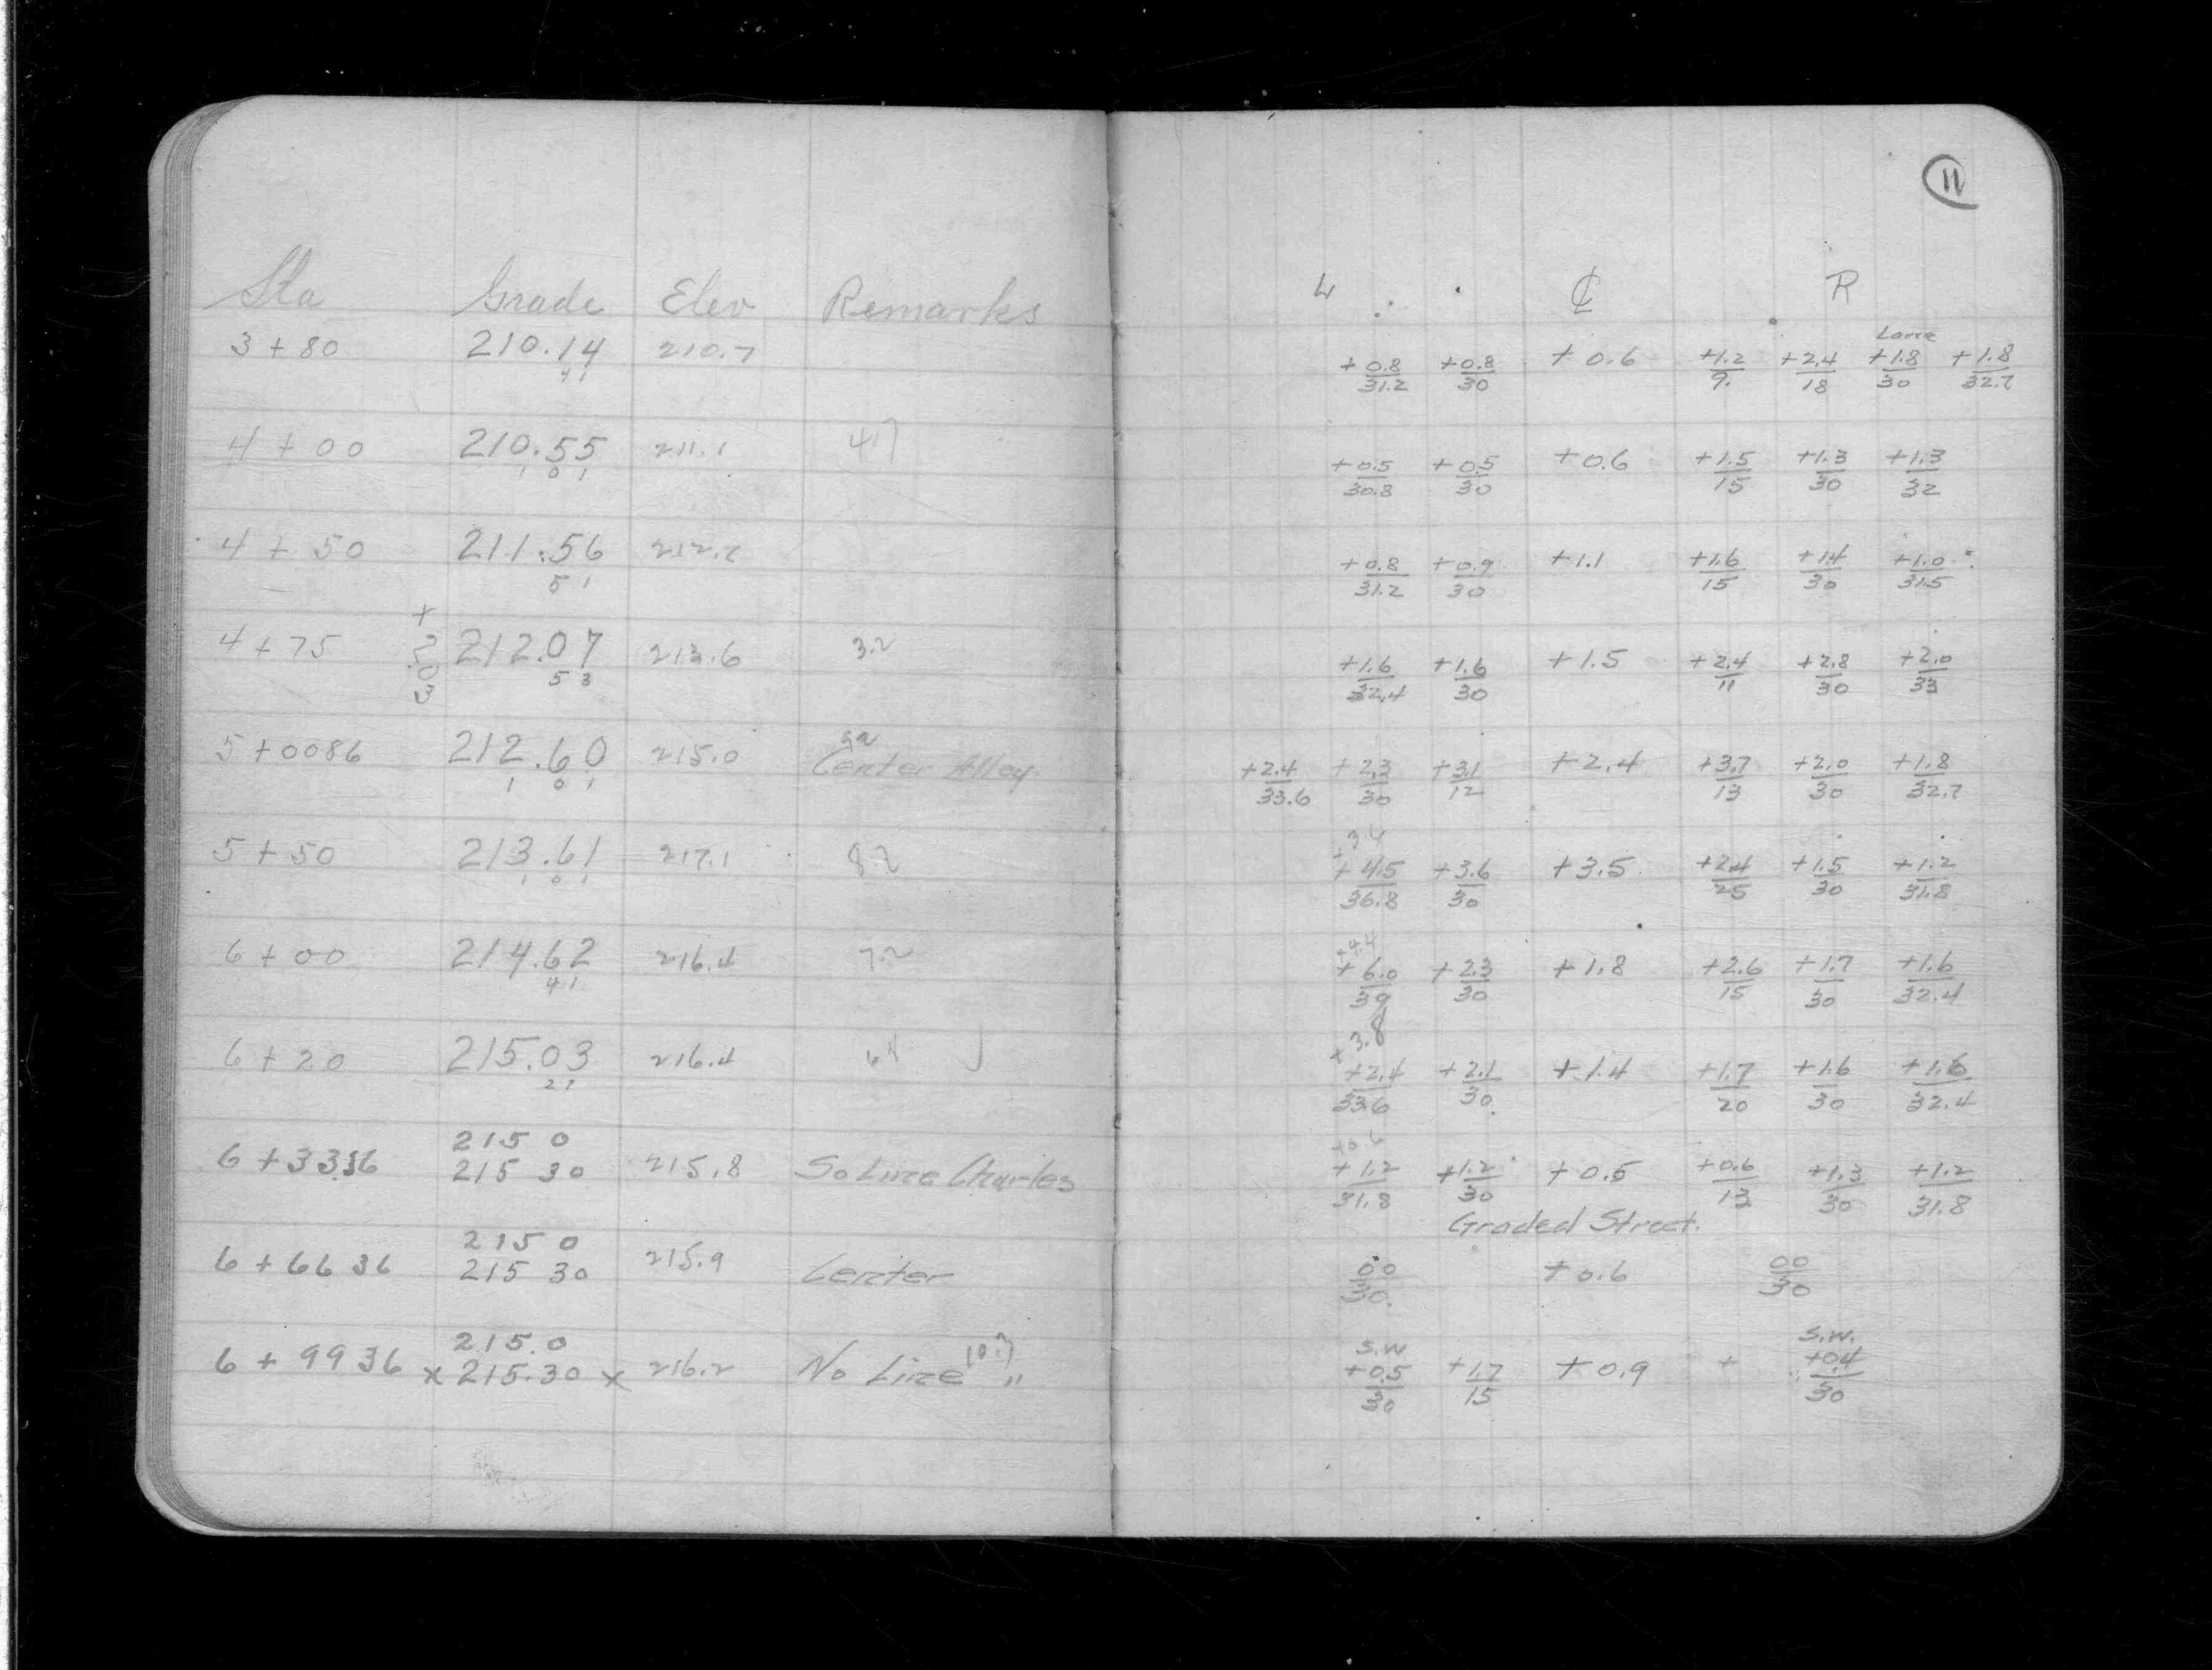 11
Sta Grade Elev Remarks L ℄ R
Lawn
3 + 80 210.14 210.7 +0.8/31.2 +0.8/30 +0.6 +1.2/9. +2.4/18 +1.8/30 +1.8/32.7
41
4 + 00 210.55 211.1 +0.5/30.8 +0.5/30 +0.6 +1.5/15 +1.3/30 +1.3/32
1 0 1
4 + 50 211.56 212.7 +0.8/31.2 +0.9/30 +1.1 +1.6/15 +1.4/30 +1.0/31.5
51
+2.03
4 + 75 212.07 213.6 3.2 +1.6/32.4 +1.6/30 +1.5 +2.4/11 +2.8/30 +2.0/33
53
5 + 0086 212.60 215.0 Center Alley +2.4/33.6 +2.3/30 +3.1/12 +2.4 +3.7/13 +2.0/30 +1.8/32.7
1 0 1
5 + 50 213.61 217.1 8.2 +4.5/36.8 +3.6/30 +3.5 +2.4/25 +1.5/30 +1.2/31.8
1 0 1
+4.4
6 + 00 214.62 216.4 7.2 +6.0/39 +2.3/30 +1.8 +2.6/15 +1.7/30 +1.6/32.4
41
+3.8
6 + 20 215.03 216.4 +2.4/33.6 +2.1/30 +1.4 +1.7/20 +1.6/30 +1.6/32.4
27
215 0
6 + 3336 215 30 215.8 So Line Charles +1.2/31.8 +1.2/30 +0.5 +0.6/13 +1.3/30 +1.2/31.8
Graded Street.
215 0
6 + 66 36 215 30 215.9 Center 00/30. +0.6 00/30
215.0 S.W. S.W.
6 + 99 36 x 215.30 x 216.2 No Line " +0.5/30 +1.7/15 +0.9 + +0.4/30